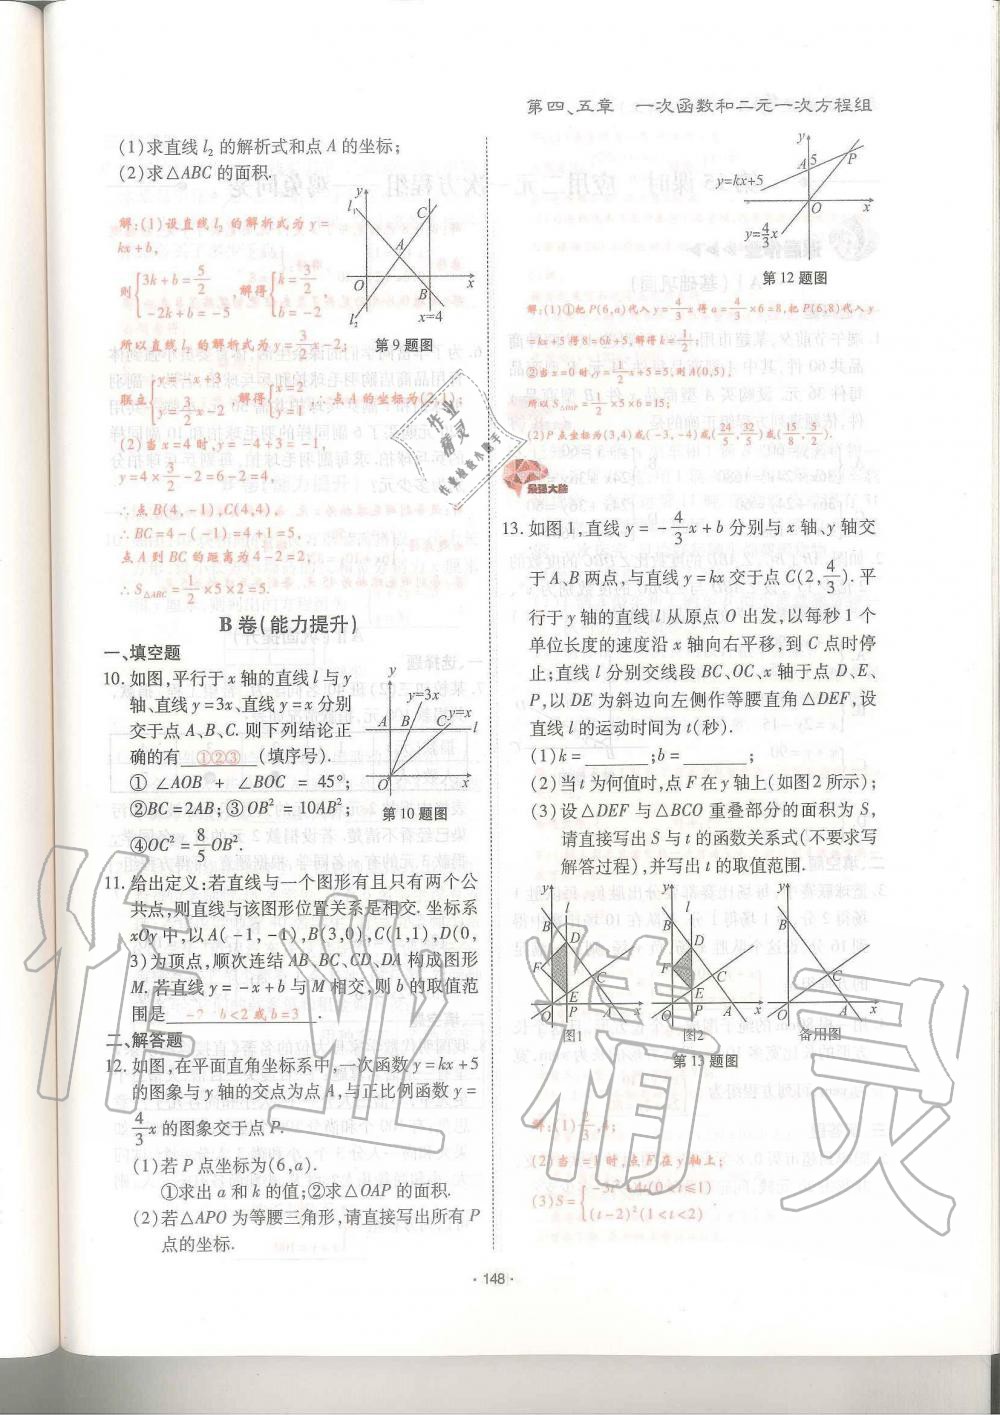 第四、五章 一次函数和二元一次方程组
(1)求直线l₂的解析式和点A的坐标;
(2)求△ABC的面积.
解:(1)设直线l₂的解析式为y=
kx+b,
则{3k+b=5/2 -2k+b=-5 解得{k=3/2 b=-2
所以直线l₂的解析式为y=3/2x-2;
联立{y=-x+3 y=3/2x-2 解得{x=2 y=1 ∴点A的坐标为(2,1);
(2)当x=4时,y=-4+3=-1,
y=4×3/2-2=6-2=4,
∴点B(4,-1),C(4,4),
∴BC=4-(-1)=4+1=5,
点A到BC的距离为4-2=2,
∴S△ABC=1/2×5×2=5.
y
l₁
C
A
O
B
x
l₂
x=4
第9题图
B卷(能力提升)
一、填空题
10.如图,平行于x轴的直线l与y
轴、直线y=3x、直线y=x分别
交于点A、B、C.则下列结论正
确的有 ①②③ (填序号).
①∠AOB+∠BOC=45°;
②BC=2AB;③OB²=10AB²;
④OC²=8/5OB².
y
y=3x
y=x
A
B
C
l
O
x
第10题图
11.给出定义:若直线与一个图形有且只有两个公
共点,则直线与该图形位置关系是相交.坐标系
xOy中,以A(-1,-1),B(3,0),C(1,1),D(0,
3)为顶点,顺次连结AB、BC、CD、DA构成图形
M.若直线y=-x+b与M相交,则b的取值范
围是 -2<b<2或b=3 .
二、解答题
12.如图,在平面直角坐标系中,一次函数y=kx+5
的图象与y轴的交点为点A,与正比例函数y=
4/3x的图象交于点P.
(1)若P点坐标为(6,a).
①求出a和k的值;②求△OAP的面积.
(2)若△APO为等腰三角形,请直接写出所有P
点的坐标.
y
A
5
P
y=kx+5
O
x
y=4/3x
第12题图
解:(1)①把P(6,a)代入y=4/3x得a=4/3×6=8,把P(6,8)代入y
=kx+5得8=6k+5,解得k=1/2;
②当x=0时,y=1/2x+5=5,则A(0,5),
所以S△OAP=1/2×5×6=15;
(2)P点坐标为(3,4)或(-3,-4)或(24/5,32/5)或(15/8,5/2).
最强大脑
13.如图1,直线y=-4/3x+b分别与x轴、y轴交
于A、B两点,与直线y=kx交于点C(2,4/3).平
行于y轴的直线l从原点O出发,以每秒1个
单位长度的速度沿x轴向右平移,到C点时停
止;直线l分别交线段BC、OC、x轴于点D、E、
P,以DE为斜边向左侧作等腰直角△DEF,设
直线l的运动时间为t(秒).
(1)k=________;b=________;
(2)当t为何值时,点F在y轴上(如图2所示);
(3)设△DEF与△BCO重叠部分的面积为S,
请直接写出S与t的函数关系式(不要求写
解答过程),并写出t的取值范围.
图1
图2
备用图
第13题图
解:(1)2/3,4;
(2)当t=1时,点F在y轴上;
(3)S={-3t²+4t(0<t≤1) (t-2)²(1<t<2) .
作业精灵
作业
精灵
作业检查小助手
·148·